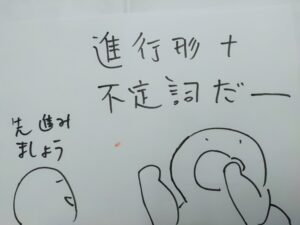 進行形+
不定詞だー
先進み
ましょう